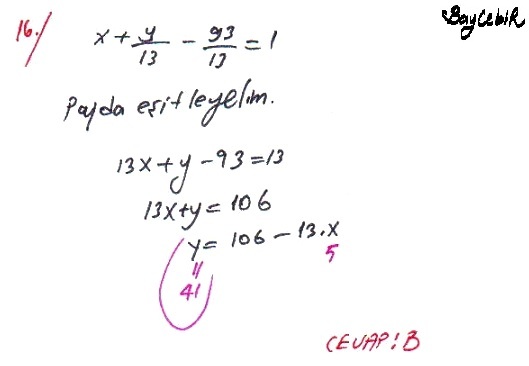 BayCebiR
16./ x + y/13 - 93/13 = 1
Payda eşitleyelim.
13x + y - 93 = 13
13x + y = 106
y = 106 - 13.x
5
41
CEVAP: B